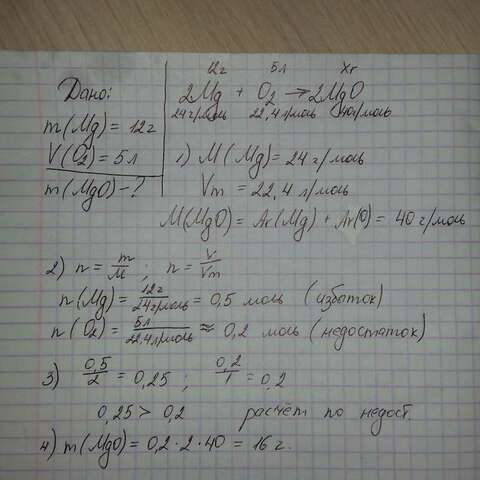 Дано:
m(Mg) = 12г
V(O₂) = 5л
m(MgO) - ?
12г 5л Xг
2Mg + O₂ → 2MgO
24г/моль 22,4л/моль 40г/моль
1) M(Mg) = 24 г/моль
Vm = 22,4 л/моль
M(MgO) = Ar(Mg) + Ar(O) = 40 г/моль
2) n = m/M ; n = V/Vm
n(Mg) = 12г/24г/моль = 0,5 моль (избыток)
n(O₂) = 5л/22,4л/моль ≈ 0,2 моль (недостаток)
3) 0,5/2 = 0,25 ; 0,2/1 = 0,2
0,25 > 0,2 расчёт по недост.
4) m(MgO) = 0,2 · 2 · 40 = 16 г.